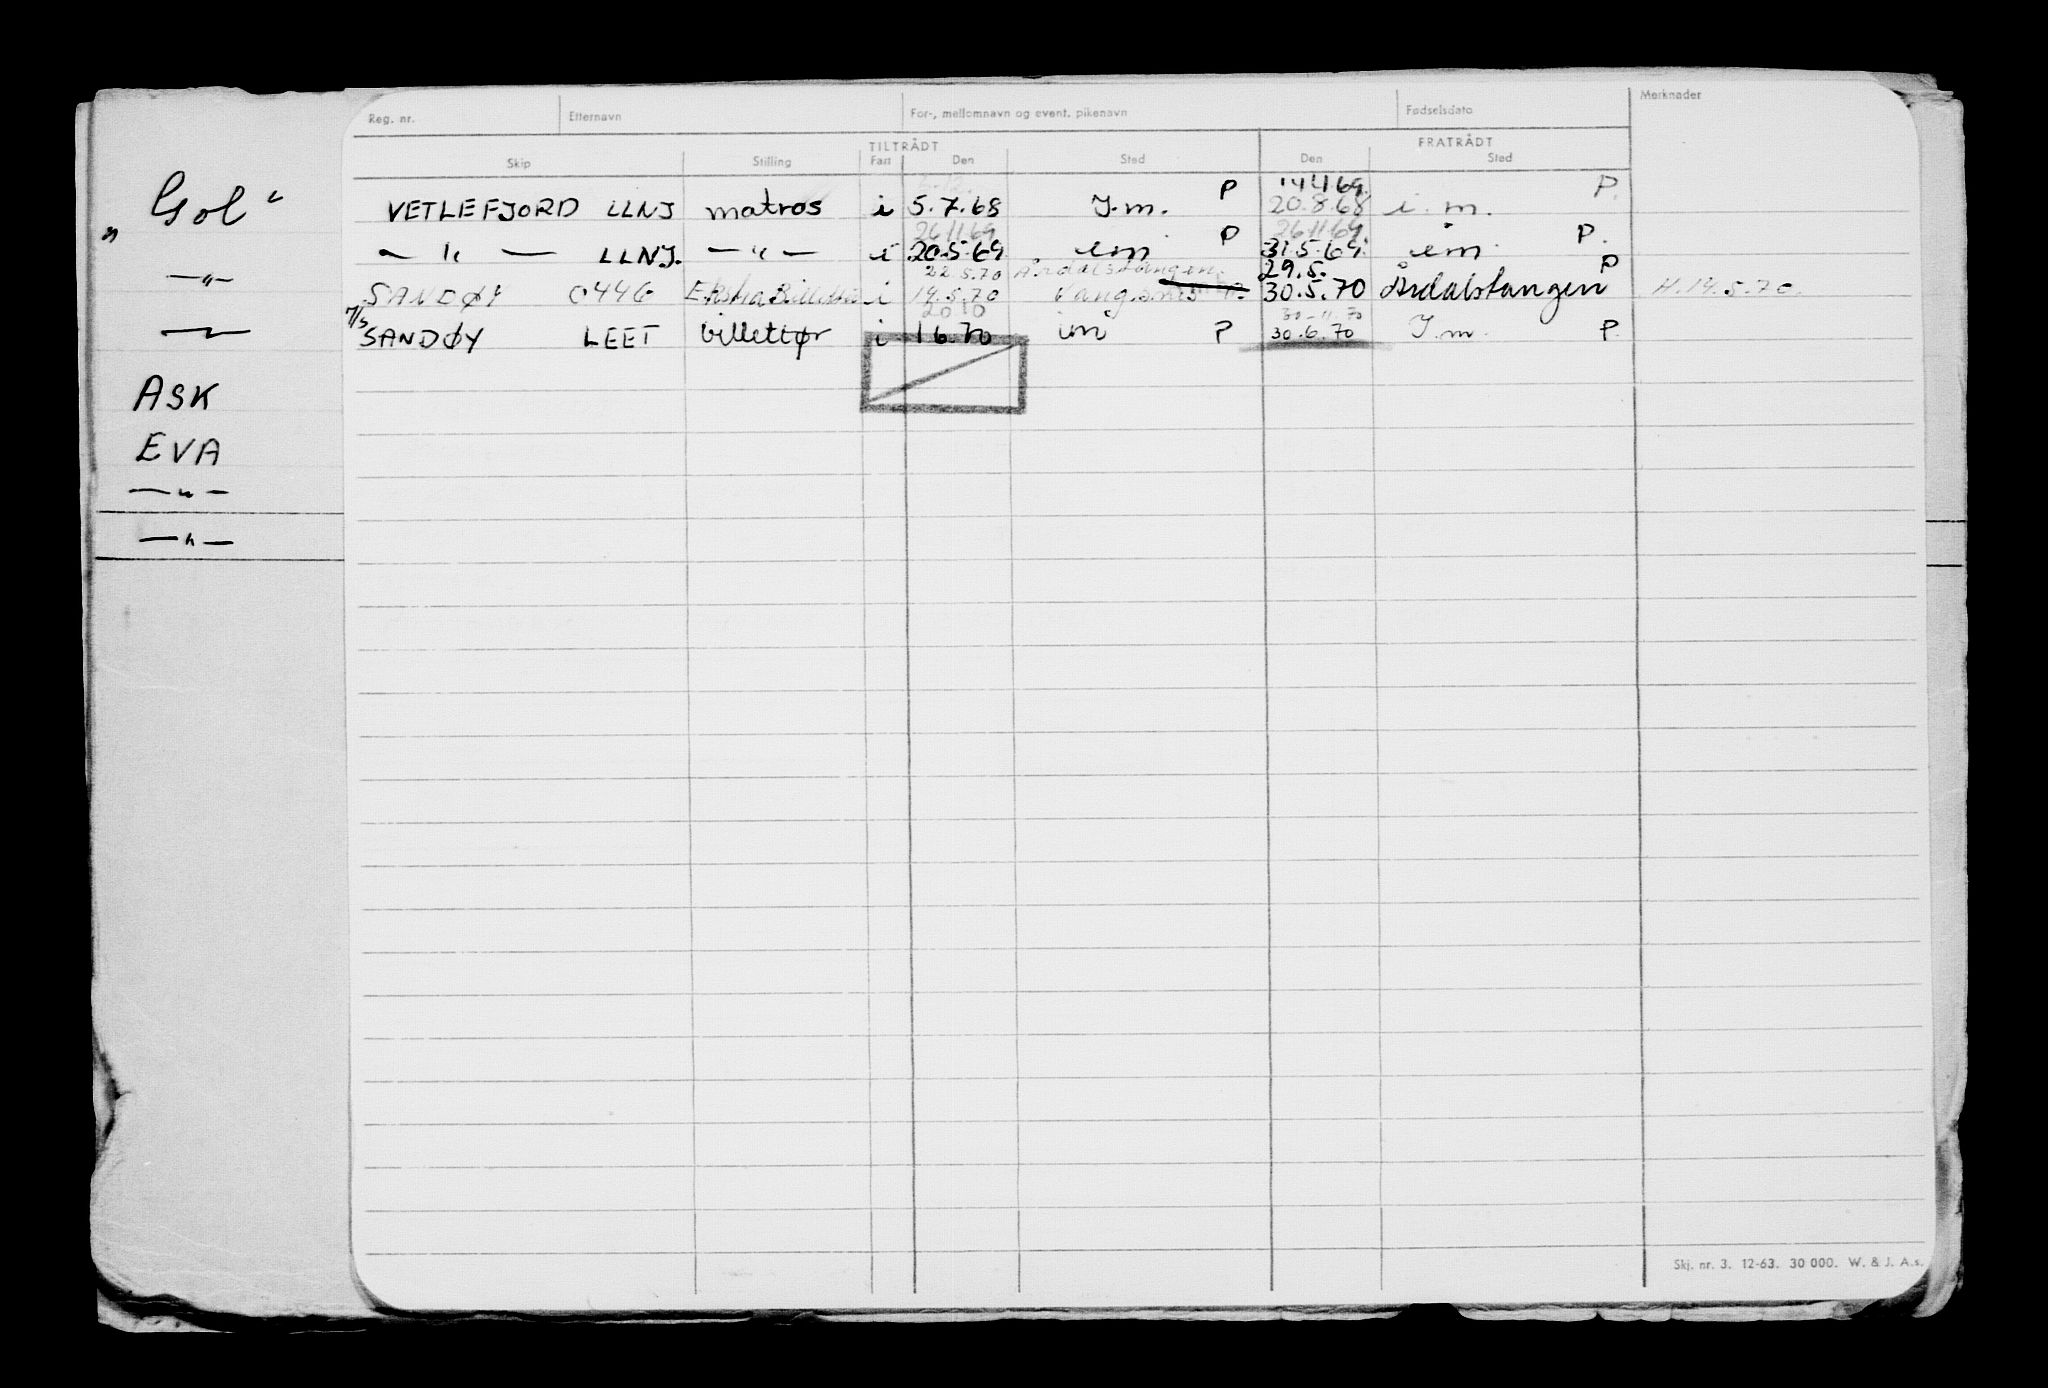 Reg. nr. Etternavn For-, mellomnavn og event. pikenavn Fødselsdato Merknader
TILTRÅDT FRATRÅDT
Skip Stilling Fart Den Sted Den Sted
"Gol"
— " —
ASK
EVA
— " —
— " —
14.4.69.
VETLEFJORD LLNJ matros i 5.7.68 I.m. P 20.8.68 i.m. P.
26.11.69. 26.11.69.
— " — LLNJ. — " — i 20.5.69 im P 31.5.69. im P.
22.5.70 Årdalstangen 29.5.
SANDØY 0446 Ekstra Billettør i 14.5.70 Vangsnes P. 30.5.70 Årdalstangen P H.14.5.70.
20.10 30-11.70
M/S SANDØY LEET billettør i 1 6.70 im P 30.6.70 I.m. P.
Skj. nr. 3. 12-63. 30 000. W. & J. A.s.